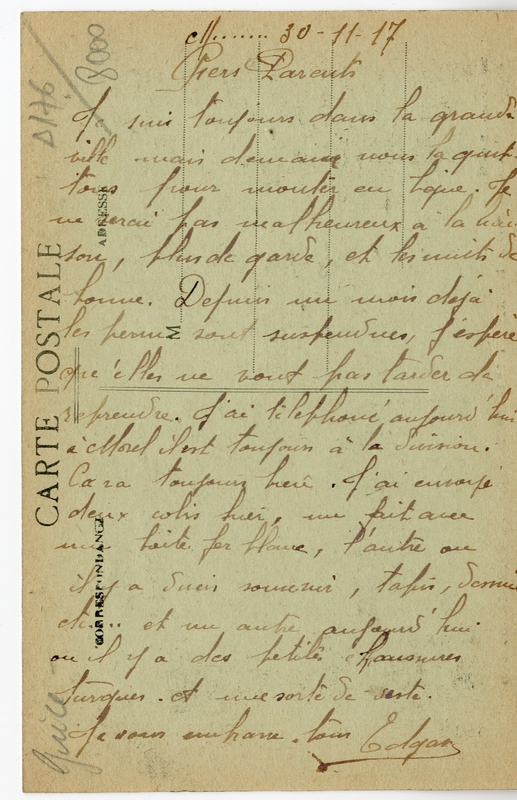 M........ 30-11-17
Chers Parents
Je suis toujours dans la grande
ville mais demain nous la quit-
tons pour monter en ligne. Je
ne serai pas malheureux à la liai
son, plus de garde, et les nuits de
bonne. Depuis un mois déjà
les perms sont suspendues, j'espère
qu'elles ne vont pas tarder de
reprendre. J'ai téléphoné aujourd'hui
à Morel il est toujours à la division.
Ca va toujours bien. J'ai envoyé
deux colis hier, un fait avec
une boite fer blanc, l'autre ou
il y a divers souvenir, tapis,
etc... et un autre aujourd'hui
ou il y a des petites chaussures
turques. et une sorte de veste.
Je vous embrasse tous Edgar
CARTE POSTALE
ADRESSE
CORRESPONDANCE
M
D176
8000